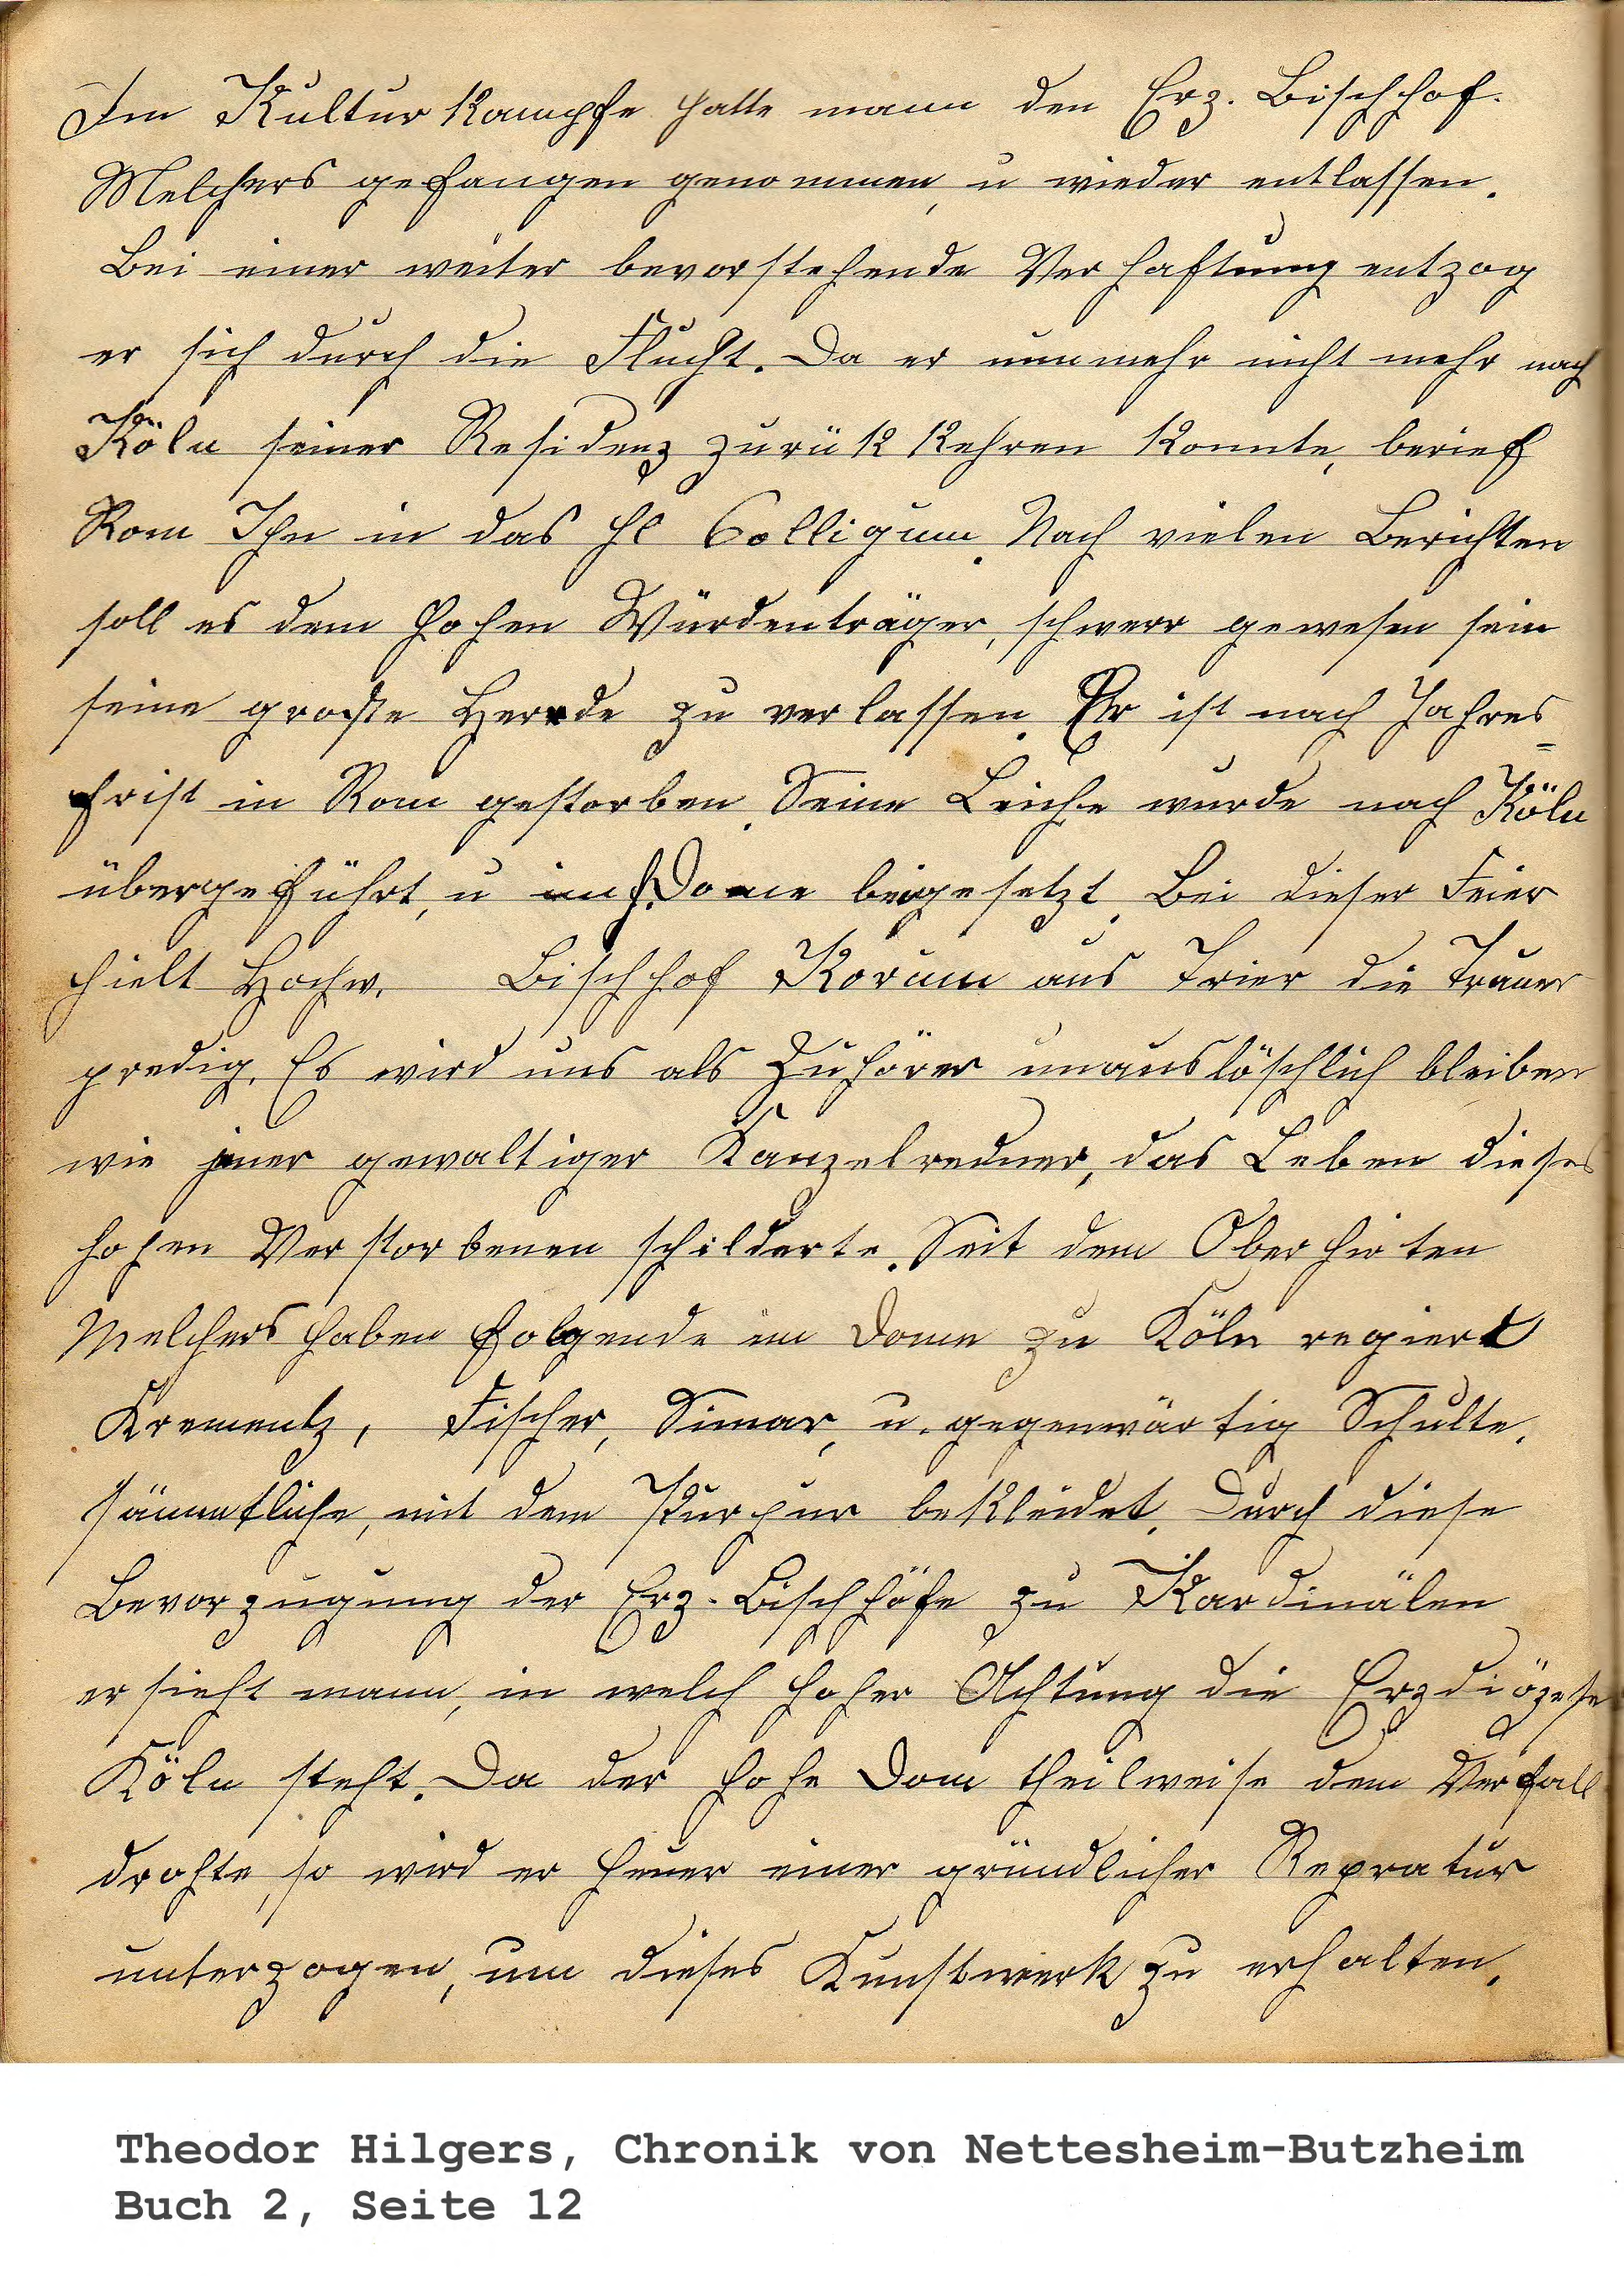 Im Kultur Kampfe hatte mann den Erz. Bischhof.
Melchers gefangen genommen, u wieder entlassen.
Bei einer weiter bevorstehende Verhaftung entzog
er sich durch die Flucht. Da er nunmehr nicht mehr nach
Köln seiner Residenz zurük kehren konnte, berief
Rom Ihn in das hl Colligum. Nach vielen Berichten
soll es dem hohen Würdenträger, schwerr gewesen sein
seine große Herrde zu verlassen. Er ist nach Jahres=
frist in Rom gestorben. Seine Leiche wurde nach Köln
übergeführt, u im h. Dome beigesetzt. Bei dieser Feier
hielt Hochw. Bischhof Korum aus Trier die Trauer
predig. Es wird uns als Zuhörer unauslöschlich bleiben
wie jener gewaltiger Kanzelredner, das Leben dieses
hohen Verstorbenen schilderte. Seit dem Oberhirten
Melchers haben folgende im Dome zu Köln regiert
Krementz, Fischer, Simar, u. gegenwärtig Schulte.
sämmtliche, mit dem Purpur bekleidet. Durch diese
Bevorzugung der Erz-Bischhöfe zu Kardinälen
ersieht mann, in welch hoher Achtung die Erzdiözese
Köln steht. Da der hohe Dom theilweise dem Verfall
drohte, so wird er heuer einer gründlicher Repratur
unterzogen, um dieses Kunstwerk zu erhalten.
Theodor Hilgers, Chronik von Nettesheim-Butzheim
Buch 2, Seite 12